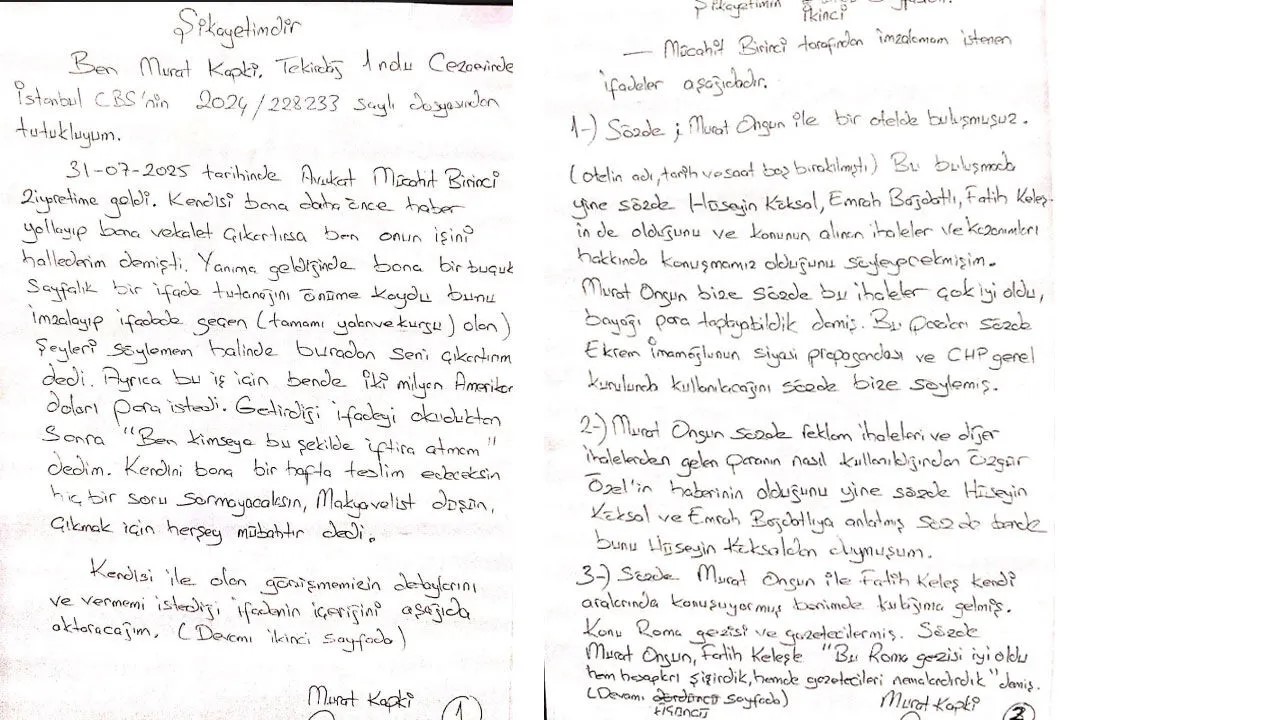 Şikayetimdir
Ben Murat Kapki, Tekirdağ 1 nolu Cezaevinde
İstanbul CBS'nin 2024/228233 sayılı dosyasından
tutukluyum.
31-07-2025 tarihinde Avukat Mücahit Birinci
Ziyaretime geldi. Kendisi bana daha önce haber
yollayıp bana vekalet çıkartırsa ben onun işini
hallederim demişti. Yanıma geldiğinde bana bir buçuk
Sayfalık bir ifade tutanağını önüme koydu bunu
imzalayıp ifadede geçen (tamamı yalan ve kurgu) olan)
Şeyleri söylemem halinde buradan seni çıkartırım
dedi. Ayrıca bu iş için bende iki milyon Amerikan
doları para istedi. Getirdiği ifadeyi okuduktan
Sonra "Ben kimseye bu şekilde iftira atmam"
dedim. Kendini bana bir hafta teslim edeceksin
hiç bir soru sormayacaksın, Makyavelist düşün,
Çıkmak için herşey mübahtır dedi.
Kendisi ile olan görüşmemizin detaylarını
ve vermemi istediği ifadenin içeriğini aşağıda
aktaracağım. (Devamı ikinci sayfada)
Murat Kapki
1
Şikayetimin
İkinci
— Mücahit Birinci tarafından imzalamam istenen
ifadeler aşağıdadır.
1-) Sözde ; Murat Ongun ile bir otelde buluşmuşuz.
(otelin adı, tarih ve saat boş bırakılmıştı) Bu buluşmada
yine sözde Hüseyin Köksal, Emrah Bağdatlı, Fatih Keleş-
in de olduğunu ve konunun alınan ihaleler ve kazanımları
hakkında konuşmamız olduğunu söyleyecekmişim.
Murat Ongun bize sözde bu ihaleler çok iyi oldu,
bayağı para toplayabildik demiş. Bu paraları sözde
Ekrem İmamoğlunun siyasi propagandası ve CHP genel
kurulunda kullanılacağını sözde bize söylemiş.
2-) Murat Ongun sözde reklam ihaleleri ve diğer
ihalelerden gelen paranın nasıl kullanıldığından Özgür
Özel'in haberinin olduğunu yine sözde Hüseyin
Köksal ve Emrah Bağdatlıya anlatmış sözde bende
bunu Hüseyin Köksaldan duymuşum.
3-) Sözde Murat Ongun ile Fatih Keleş kendi
aralarında konuşuyormuş benimde kulağıma gelmiş.
Konu Roma gezisi ve gazetecilermiş. Sözde
Murat Ongun, Fatih Keleşle "Bu Roma gezisi iyi oldu
hem hesapları şişirdik, hemde gazetecileri nemalandırdık" demiş.
(Devamı sayfada)
Murat Kapki
2